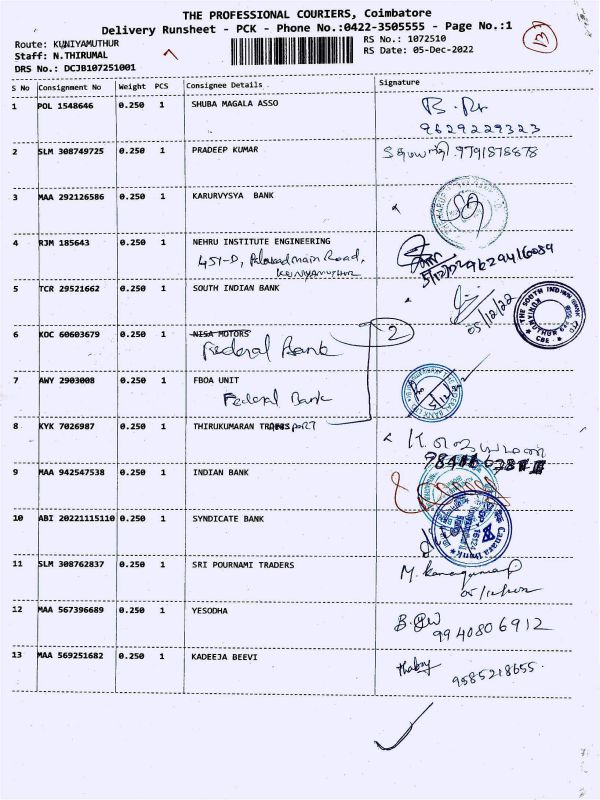 THE PROFESSIONAL COURIERS, Coimbatore
Delivery Runsheet - PCK - Phone No.:0422-3505555 - Page No.:1
Route: KUNIYAMUTHUR
RS No.: 1072510
13
Staff: N.THIRUMAL
RS Date: 05-Dec-2022
DRS No.: DCJB107251001
S No Consignment No Weight PCS Consignee Details Signature
1 POL 1548646 0.250 1 SHUBA MAGALA ASSO
9629229323
2 SLM 308749725 0.250 1 PRADEEP KUMAR
9791878878
3 MAA 292126586 0.250 1 KARURVYSYA BANK
4 RJM 185643 0.250 1 NEHRU INSTITUTE ENGINEERING
451-D, Palakkad main Road,
Kuniyamuthur
9629416089
5 TCR 29521662 0.250 1 SOUTH INDIAN BANK
05/12/22
THE SOUTH INDIAN BANK LTD
CBE
6 KOC 60603679 0.250 1 NISA MOTORS
Federal Bank
2
7 AWY 2903008 0.250 1 FBOA UNIT
Federal Bank
8 KYK 7026987 0.250 1 THIRUKUMARAN TRANSPORT
9 MAA 942547538 0.250 1 INDIAN BANK
10 ABI 20221115110 0.250 1 SYNDICATE BANK
Canara Bank
11 SLM 308762837 0.250 1 SRI POURNAMI TRADERS
12 MAA 567396689 0.250 1 YESODHA
9940806912
13 MAA 569251682 0.250 1 KADEEJA BEEVI
9585218655